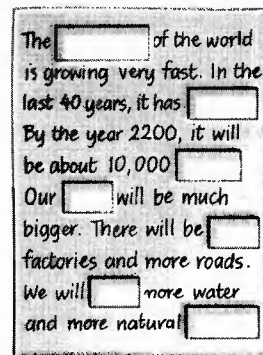 The of the world
is growing very fast. In the
last 40 years, it has
By the year 2200, it will
be about 10,000
Our will be much
bigger. There will be
factories and more roads.
We will more water
and more natural